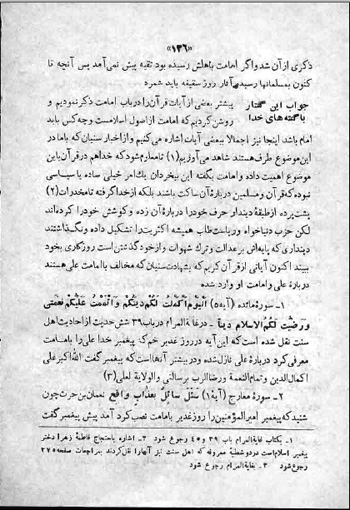 «۱۳۶»
ذکری از آن شد و اگر امامت باهلش رسیده بود تقیه پیش نمی آمد پس آنچه تا
کنون بمسلمانها رسیده از آثار روز سقیفه باید شمرد
جواب این گفتار پیشتر بعضی از آیات قرآن را درباب امامت ذکر نمودیم و
با گفته های خدا روشن کردیم که امامت از اصول اسلامست و چه کس باید
امام باشد اینجا نیز اجمالا ببعضی آیات اشاره می کنیم و از اخبار سنیان که با ما در
این موضوع طرف هستند شاهد می آوریم (۱) تا معلوم شود که خدا هم در قرآن باین
موضوع اهمیت داده و امامت بگفته این بیخردان یک امر خیلی ساده یا سیاسی
نبوده که قرآن و مسلمین درباره آن ساکت باشند بلکه از خدا گرفته تا مخدرات (۲)
پشت پرده از طبقهٔ دیندار حرف خود را درباره آن زده و کوشش خود را کرده اند
لکن حزب دنیاخواه و ریاست طلب همیشه اکثریت را تشکیل داده و نگذاشتند
دینداری که پایه اش بر عدالت و ترك شهوات و از خود گذشتن است روزگاری بخود
ببیند اکنون آیاتی از قرآن کریم که بشهادت سنیان که مخالف با امامت علی هستند
درباره علی و امامت او وارد شده
۱ـ سوره مائده (آیه ۵) الْیَوْمَ اَکْمَلْتُ لَکُمْ دِینَکُمْ وَ اَتْمَمْتُ عَلَیْکُمْ نِعْمَتِی
وَ رَضِیتُ لَکُمُ الْاِسْلامَ دِیناً ـ در غایة المرام در باب ۳۹ شش حدیث از احادیث اهل
سنت نقل شده است که این آیه در روز غدیر خم که پیغمبر خدا علی را بامامت
معرفی کرد درباره علی نازل شده و در بیشتر آنها است که پیغمبر گفت الله اکبر علی
اکمال الدین و تمام النعمة و رضا الرب برسالتی والولایة لعلی (۳)
۲ـ سوره معارج (آیهٔ ۱) سَئَلَ سائِلٌ بِعَذابٍ واقِعٍ نعمان بن حرث چون
شنید که پیغمبر امیرالمؤمنین را روز غدیر بامامت نصب کرد آمد پیش پیغمبر گفت
۱ـ بکتاب غایة المرام باب ۳۹ و ۴۵ رجوع شود ۲ـ اشاره باحتجاج فاطمة زهرا دختر
پیغمبر اسلام است در دو خطبهٔ معروفه که اهل سنت نیز آنها را نقل کردند بمراجعات صفحه ۲۷۵
رجوع شود ۳ـ بغایة المرام رجوع شود